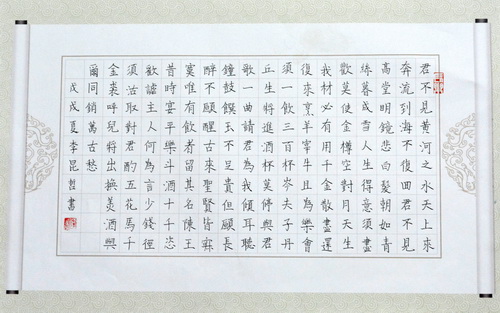 君不見黃河之水天上來
奔流到海不復回君不見
高堂明鏡悲白髮朝如青
絲暮成雪人生得意須盡
歡莫使金樽空對月天生
我材必有用千金散盡還
復來烹羊宰牛且為樂會
須一飲三百杯岑夫子丹
丘生將進酒杯莫停與君
歌一曲請君為我傾耳聽
鐘鼓饌玉不足貴但願長
醉不願醒古來聖賢皆寂
寞唯有飲者留其名陳王
昔時宴平樂斗酒十千恣
歡謔主人何為言少錢徑
須沽取對君酌五花馬千
金裘呼兒將出換美酒與
爾同銷萬古愁
戊戌夏李昆哲書